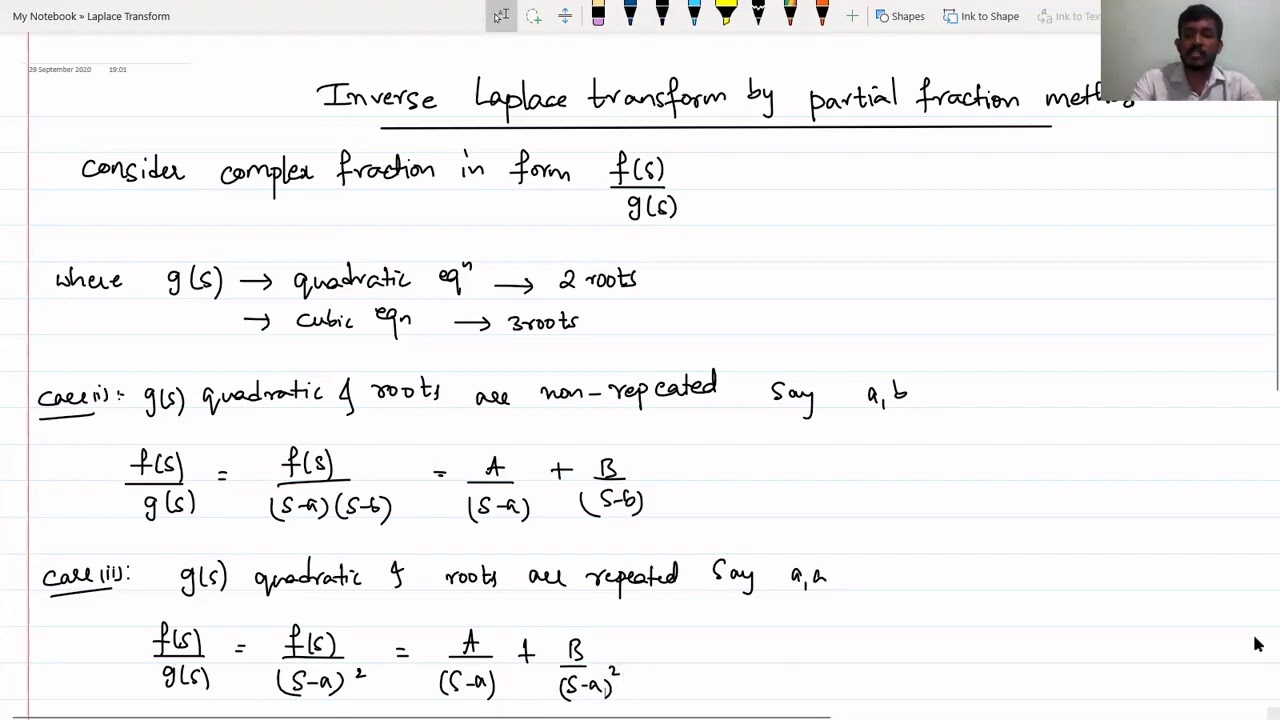 My Notebook » Laplace Transform
Shapes
Ink to Shape
Ink to Text
29 September 2020 19:01
Inverse Laplace transform by partial fraction
Consider complex fraction in form f(s)/g(s)
where g(s) → quadratic eqⁿ → 2 roots
→ cubic eqn → 3 roots
Case(i):- g(s) quadratic & roots are non-repeated Say a,b
f(s)/g(s) = f(s)/(s-a)(s-b) = A/(s-a) + B/(s-b)
Case(ii): g(s) quadratic & roots are repeated Say a,a
f(s)/g(s) = f(s)/(s-a)² = A/(s-a) + B/(s-a)²